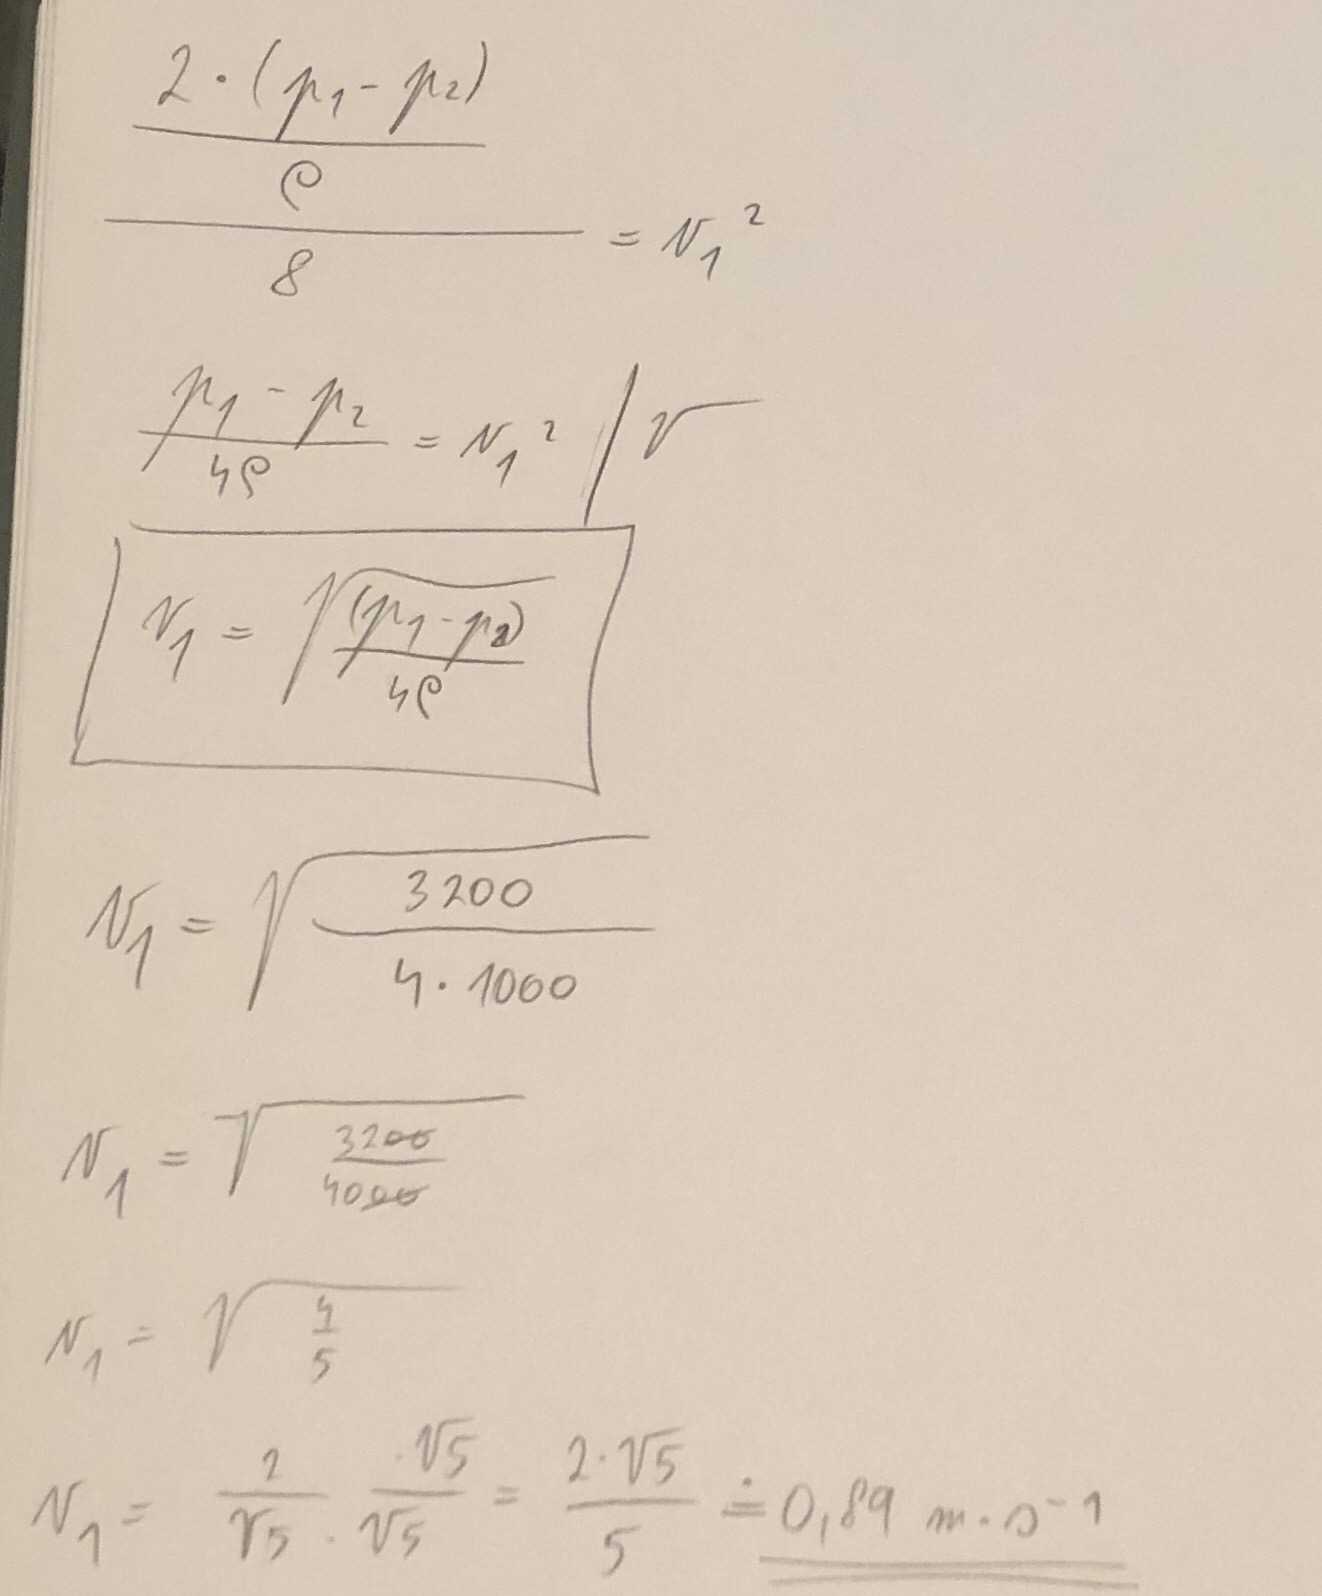 2 · (p₁ - p₂)
ρ
8
= v₁²
p₁ - p₂ / 4ρ = v₁² / √
v₁ = √((p₁ - p₂) / 4ρ)
v₁ = √(3200 / 4 · 1000)
v₁ = √(3200 / 4000)
v₁ = √(4 / 5)
v₁ = 2 / √5 · · √5 / √5 = 2 · √5 / 5 ≐ 0,89 m · s⁻¹